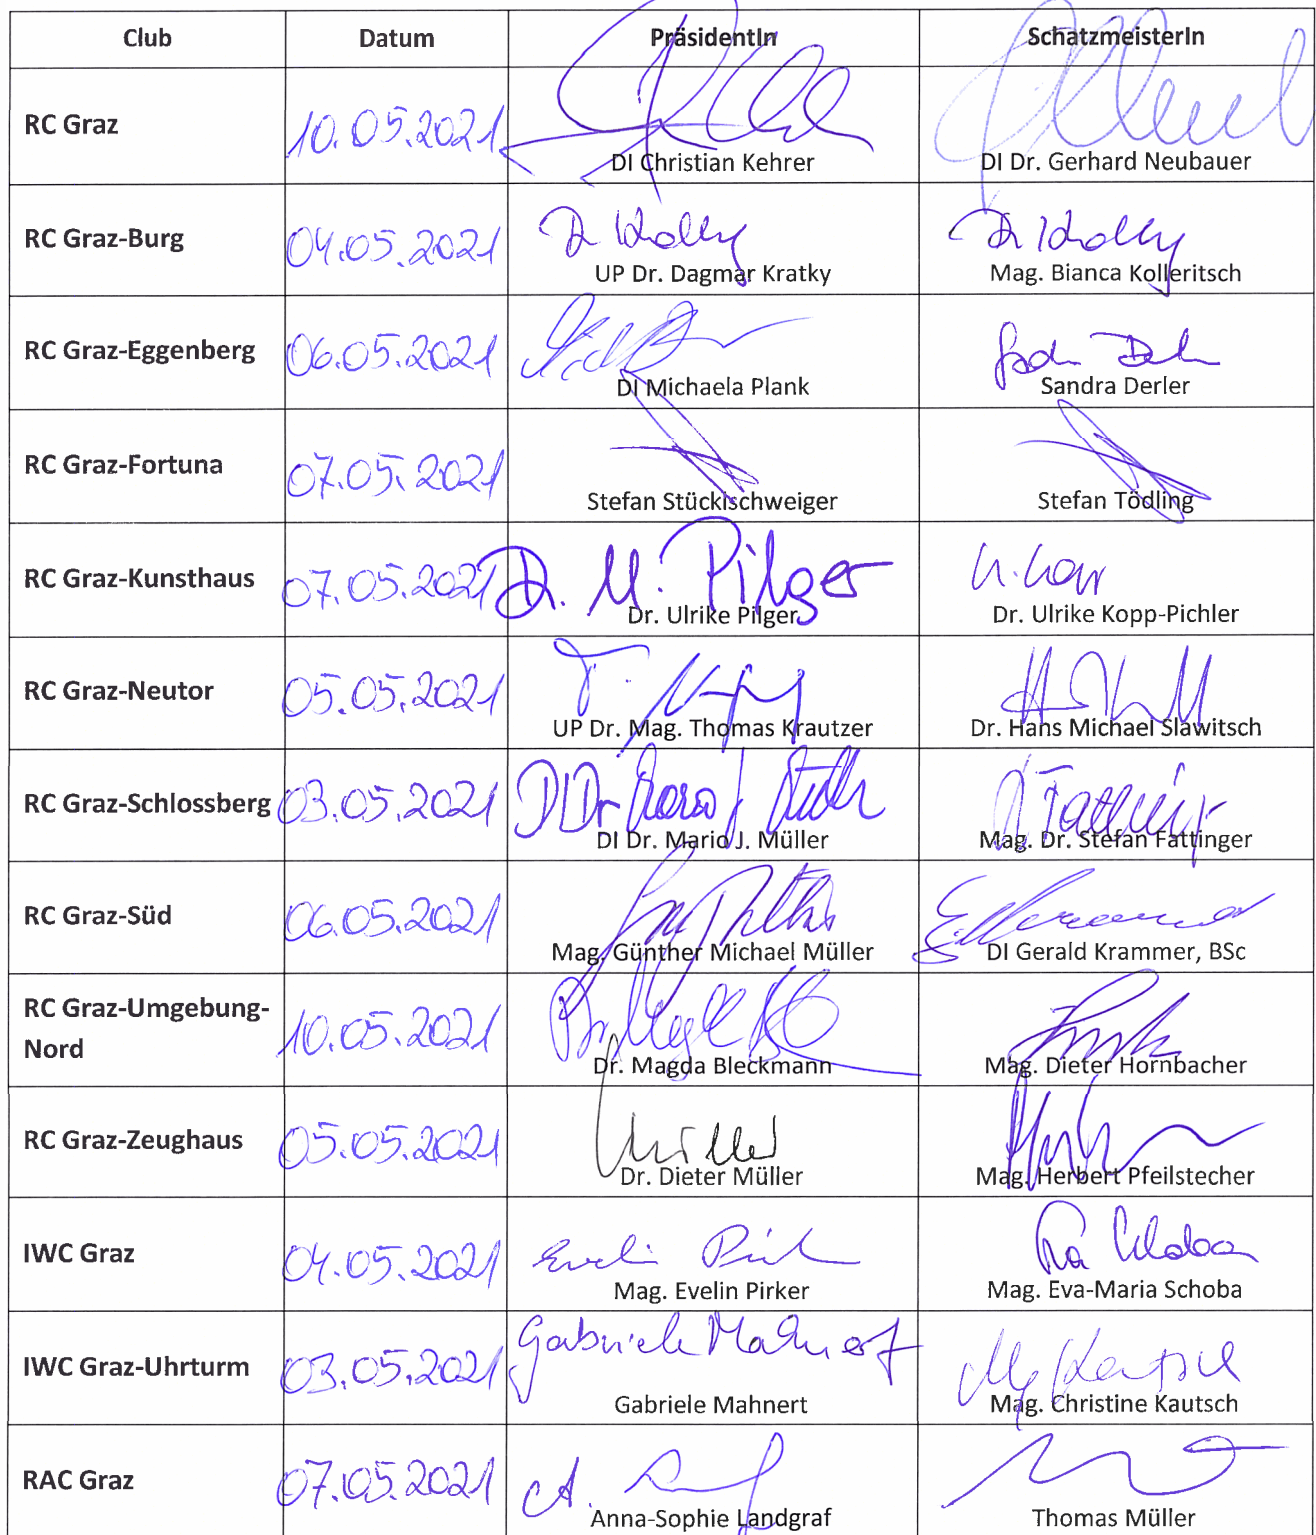 Club Datum PräsidentIn SchatzmeisterIn
RC Graz 10.05.2021 DI Christian Kehrer DI Dr. Gerhard Neubauer
RC Graz-Burg 04.05.2021 UP Dr. Dagmar Kratky Mag. Bianca Kolleritsch
RC Graz-Eggenberg 06.05.2021 DI Michaela Plank Sandra Derler
RC Graz-Fortuna 07.05.2021 Stefan Stückischweiger Stefan Tödling
RC Graz-Kunsthaus 07.05.2021 Dr. U. Pilger
Dr. Ulrike Pilger Dr. Ulrike Kopp-Pichler
RC Graz-Neutor 05.05.2021 UP Dr. Mag. Thomas Krautzer Dr. Hans Michael Slawitsch
RC Graz-Schlossberg 03.05.2021 DI Dr. Mario J. Müller Mag. Dr. Stefan Fattinger
RC Graz-Süd 06.05.2021 Mag. Günther Michael Müller DI Gerald Krammer, BSc
RC Graz-Umgebung-
Nord 10.05.2021 Dr. Magda Bleckmann Mag. Dieter Hornbacher
RC Graz-Zeughaus 05.05.2021 Dr. Dieter Müller Mag. Herbert Pfeilstecher
IWC Graz 04.05.2021 Mag. Evelin Pirker Mag. Eva-Maria Schoba
IWC Graz-Uhrturm 03.05.2021 Gabriele Mahnert
Gabriele Mahnert Mag. Christine Kautsch
RAC Graz 07.05.2021 Anna-Sophie Landgraf Thomas Müller